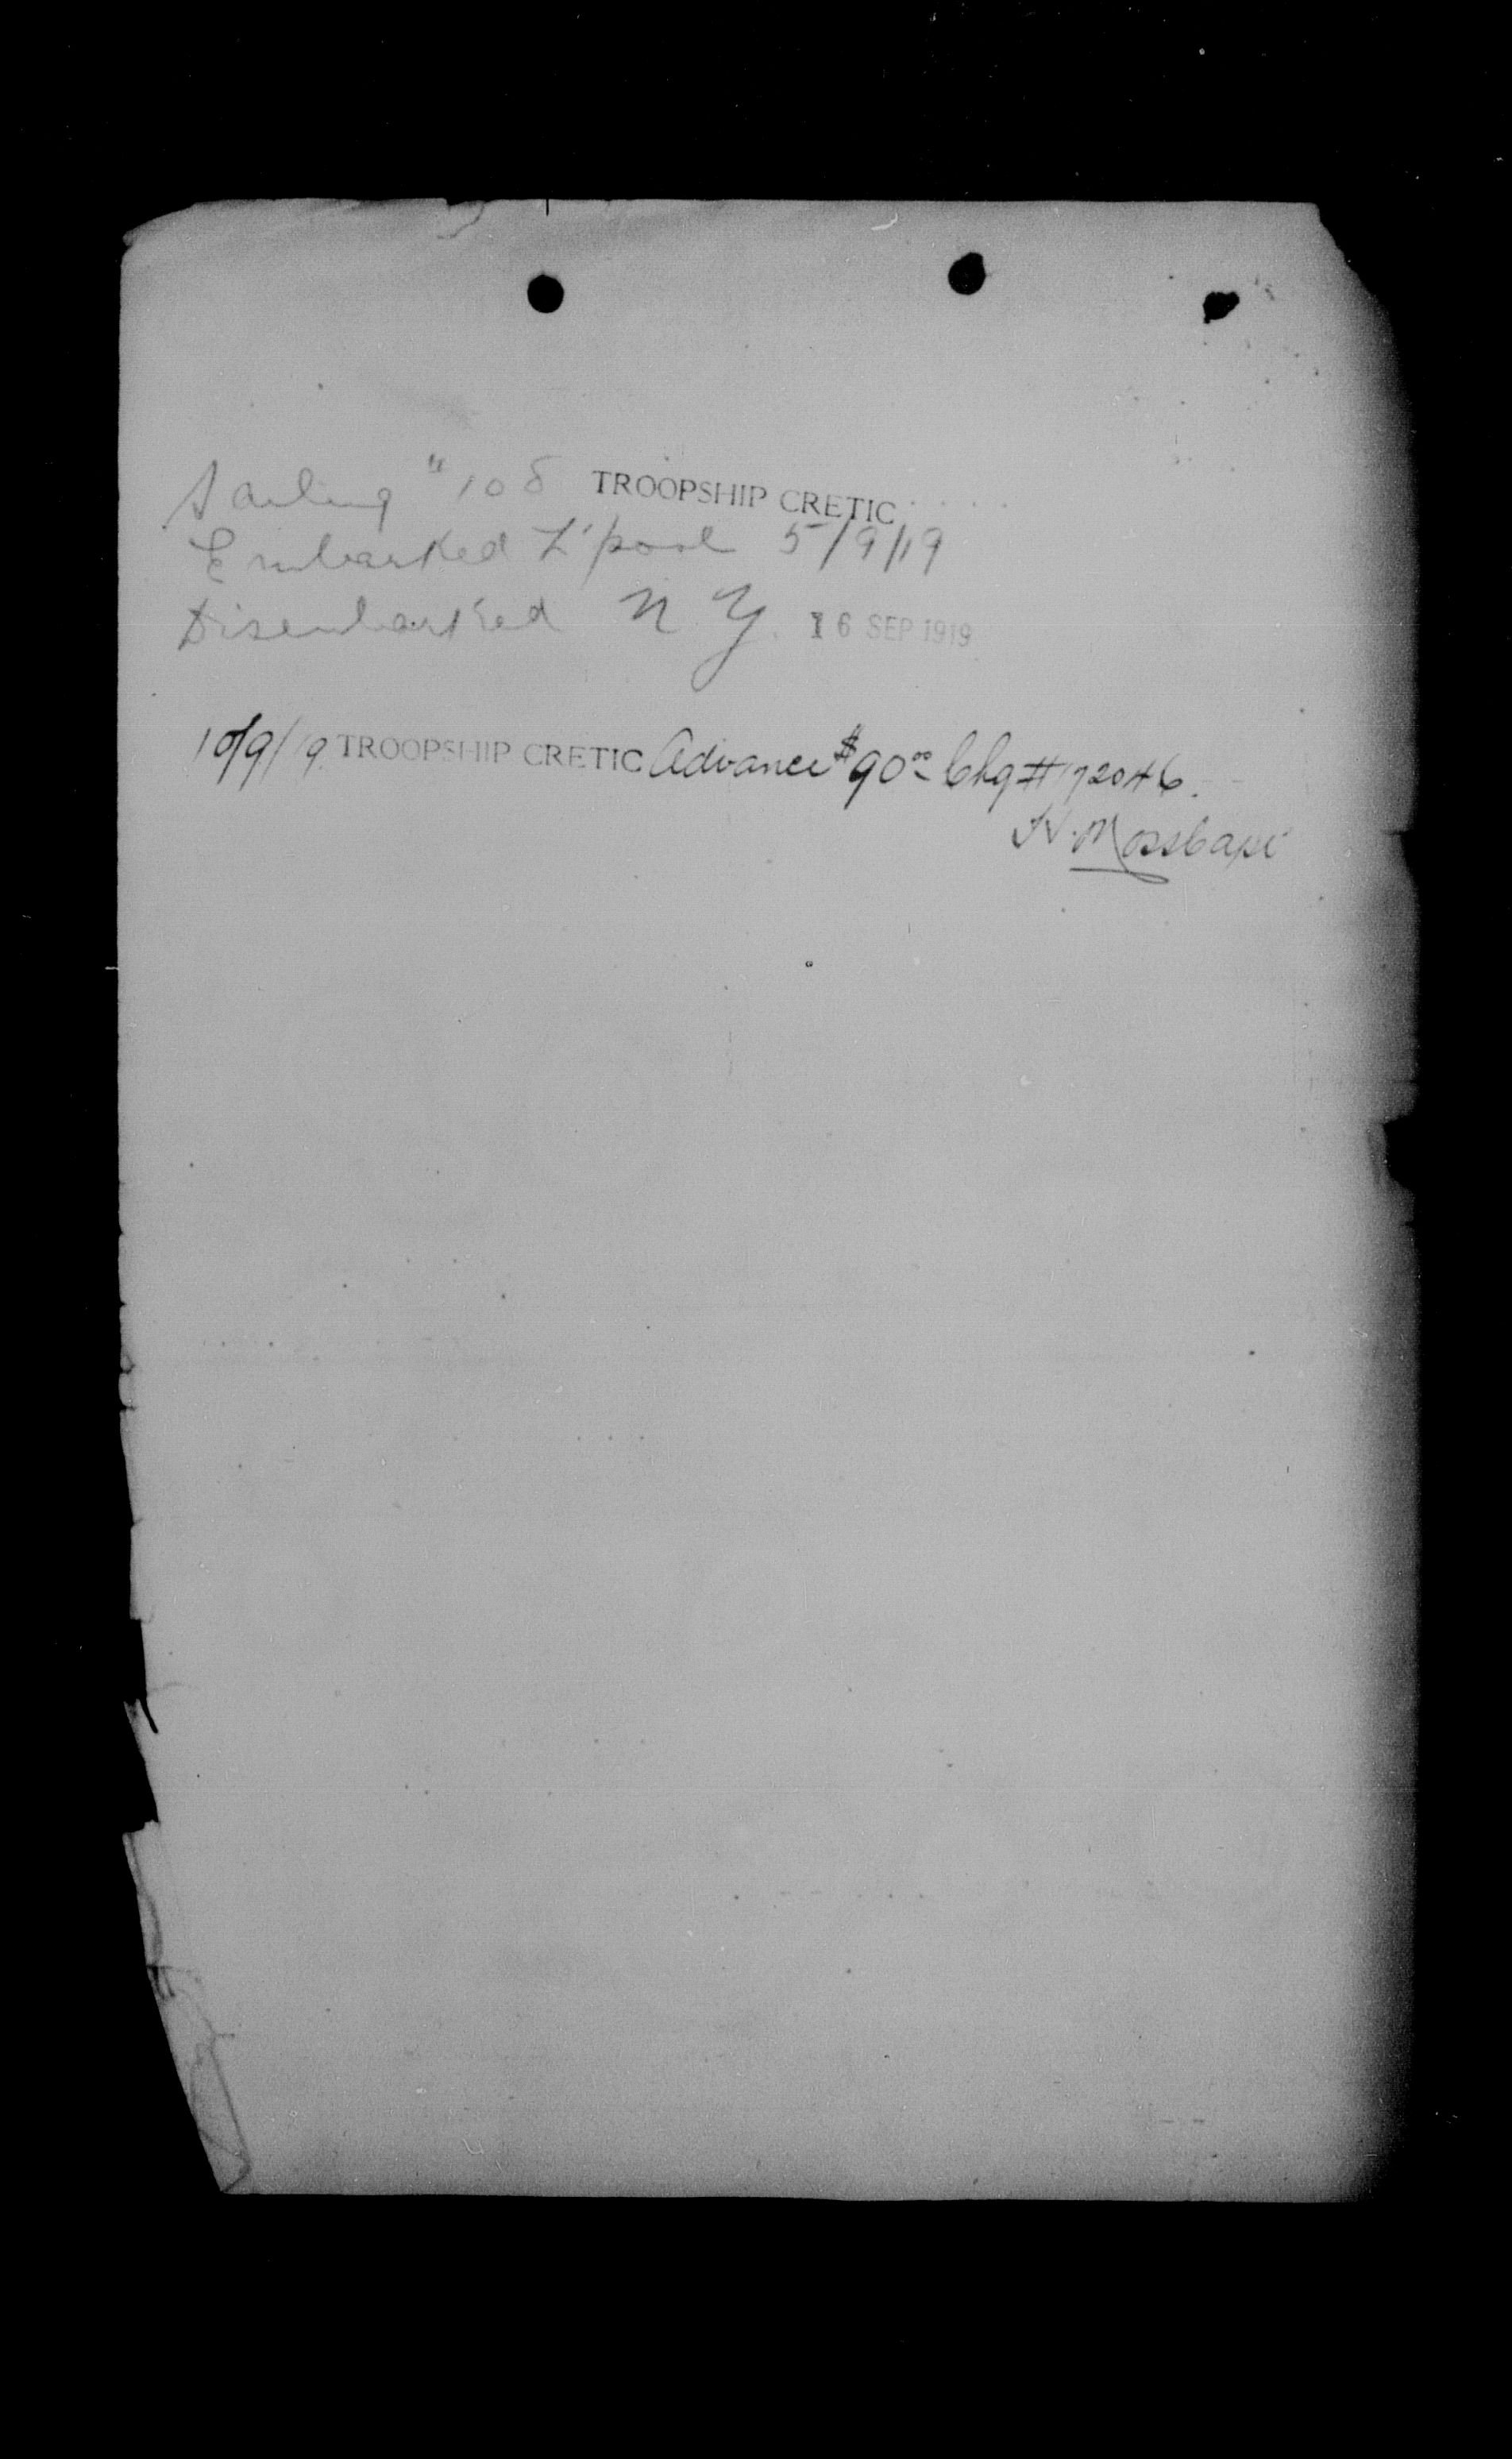 Sailing # 108 TROOPSHIP CRETIC
Embarked L'pool 5/9/19
Disembarked N.Y. 16 SEP 1919
10/9/19 TROOPSHIP CRETIC Advance $90⁰⁰ Chq # 172046.